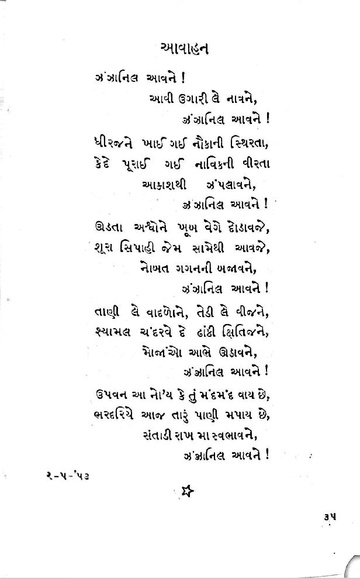 આવાહન
ઝંઝાનિલ આવને !
આવી ઉગારી લે નાવને,
ઝંઝાનિલ આવને !
ધીરજને ખાઈ ગઈ નૌકાની સ્થિરતા,
કેદે પૂરાઈ ગઈ નાવિકની વીરતા
આકાશથી ઝંપલાવને,
ઝંઝાનિલ આવને !
ઊડતા અશ્વોને ખૂબ વેગે દોડાવજે,
શૂરા સિપાહી જેમ સામેથી આવજે,
નોબત ગગનની બજાવને,
ઝંઝાનિલ આવને !
તાણી લે વાદળોને, તેડી લે વીજને,
શ્યામલ ચંદરવે દે ઢાંકી ક્ષિતિજને,
મોજાંઓ આભે ઊડાવને,
ઝંઝાનિલ આવને !
ઉપવન આ નો'ય કે તું મંદમંદ વાય છે,
ભરદરિયે આજ તારું પાણી મપાય છે,
સંતાડી રાખ મા સ્વભાવને,
ઝંઝાનિલ આવને !
૨-૫-'૫૩
૩૫